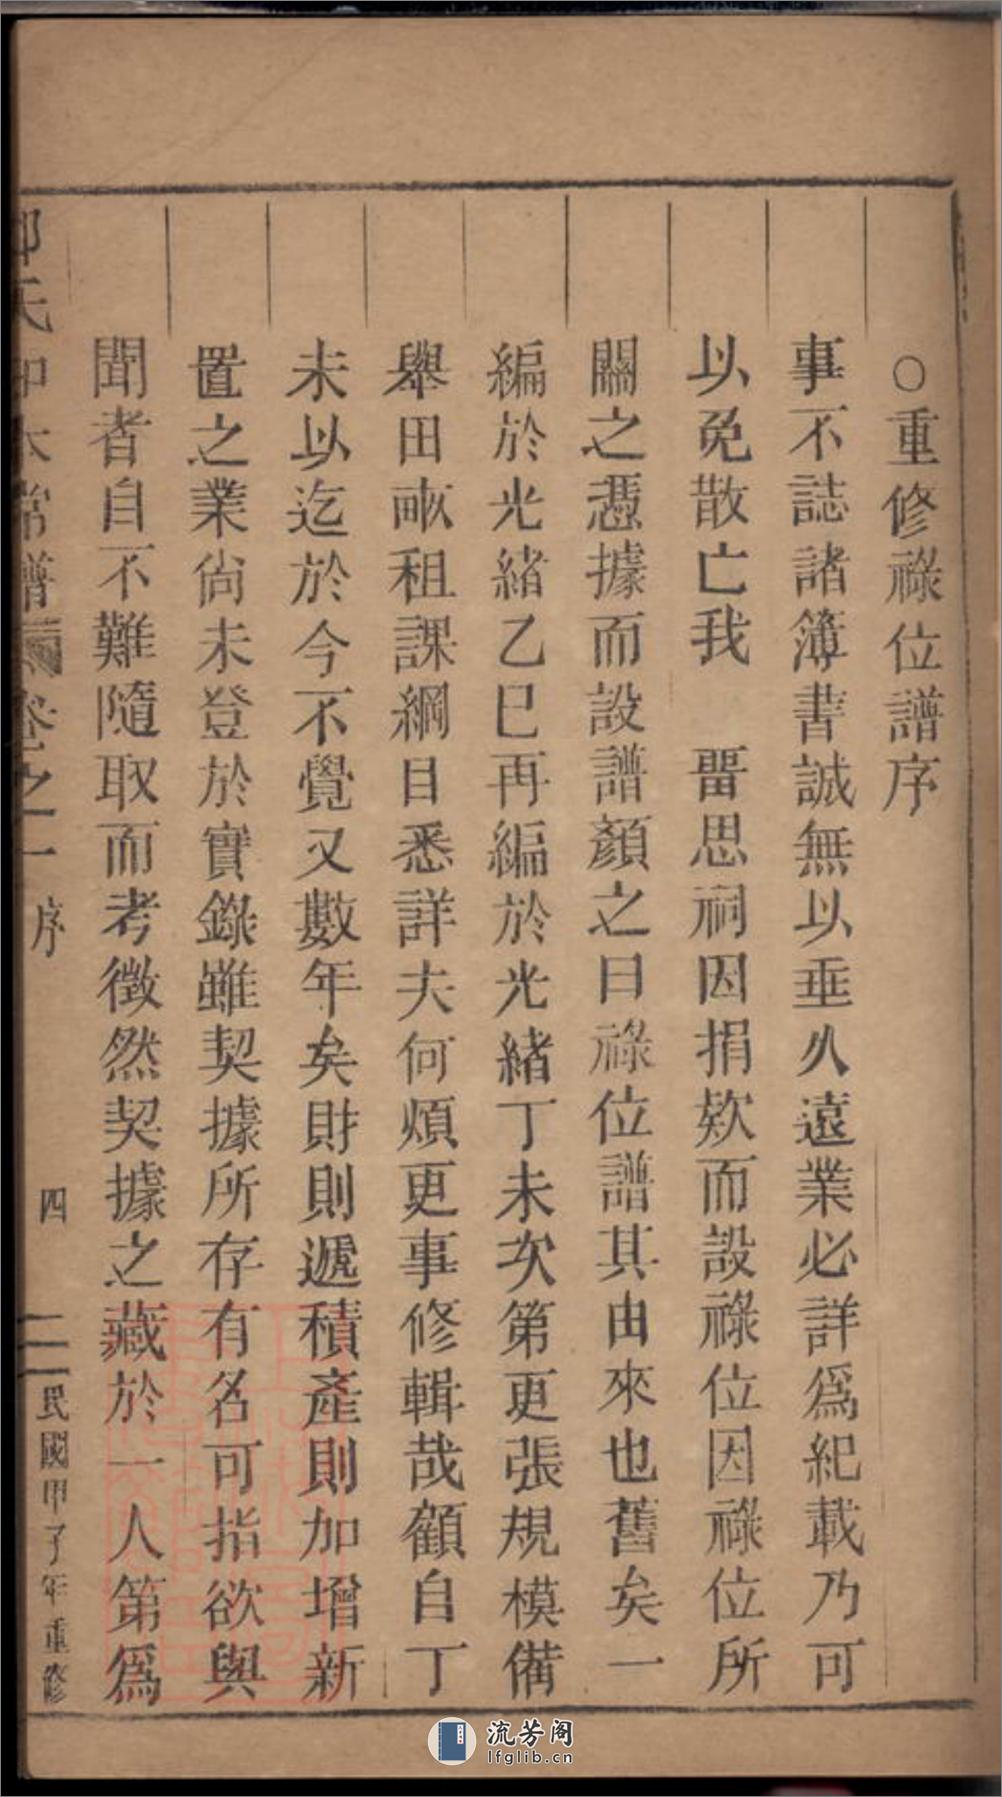 ○重修祿位譜序
事不誌諸簿書誠無以垂久遠業必詳爲紀載乃可
以免散亡我 畱思祠因捐欵而設祿位因祿位所
關之憑據而設譜顏之曰祿位譜其由來也舊矣一
編於光緒乙巳再編於光緒丁未次第更張規模備
舉田畝租課綱目悉詳夫何煩更事修輯哉顧自丁
未以迄於今不覺又數年矣財則遞積產則加增新
置之業尙未登於實錄雖契據所存有名可指欲與
聞者自不難隨取而考徵然契據之藏於一人第爲
氏 常譜 卷之一 序 四 民國甲子年重修
流芳阁
lfglib.cn